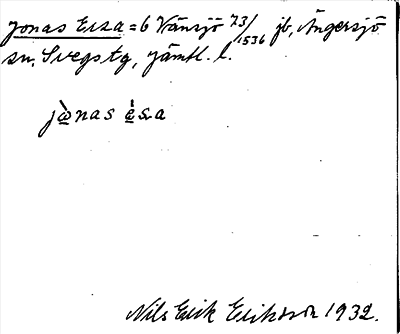 Jonas Ersa = 6 Vänsjö 73/1536 jb, Ängersjö
sn, Svegs tg, Jämtl. l.
jònas èsa
Nils Erik Eriksson 1932.